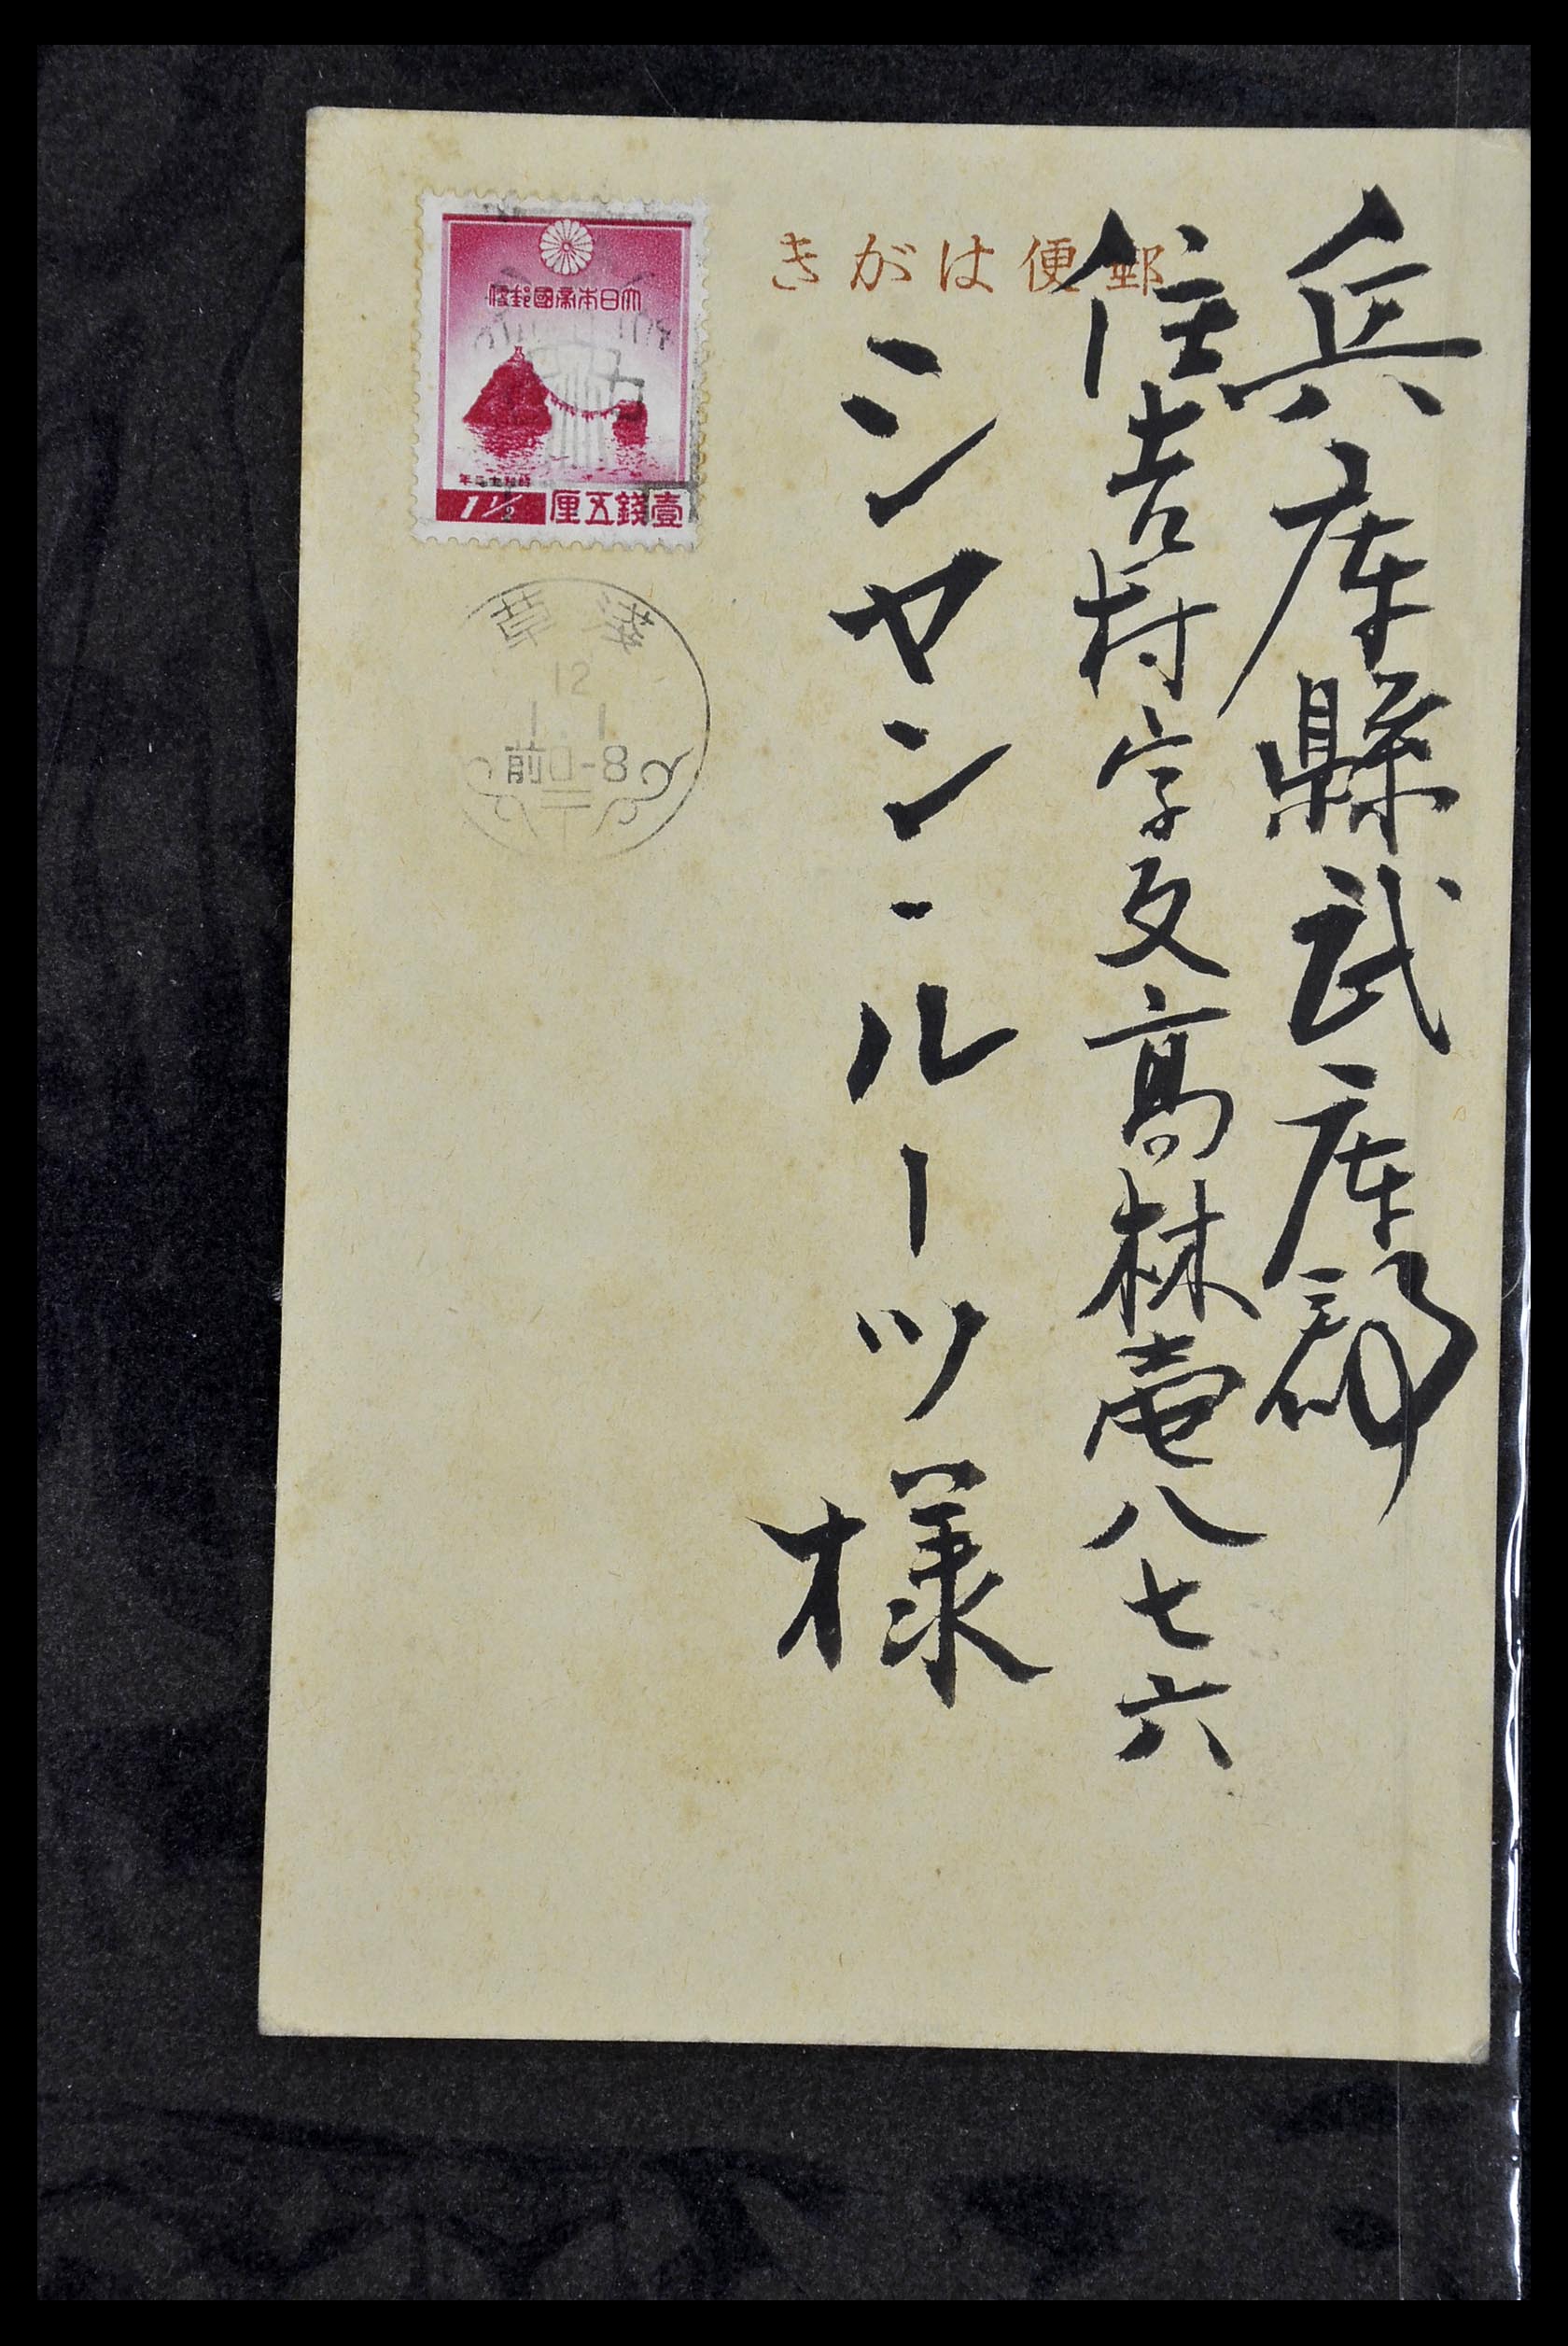 郵便はがき
兵庫縣武庫郡
住吉村字反高林壱八七六
シャン・ルーツ様
大日本帝國郵便
昭和十二年
1½ 壹錢五厘
淺草
12
1.1
前0-8